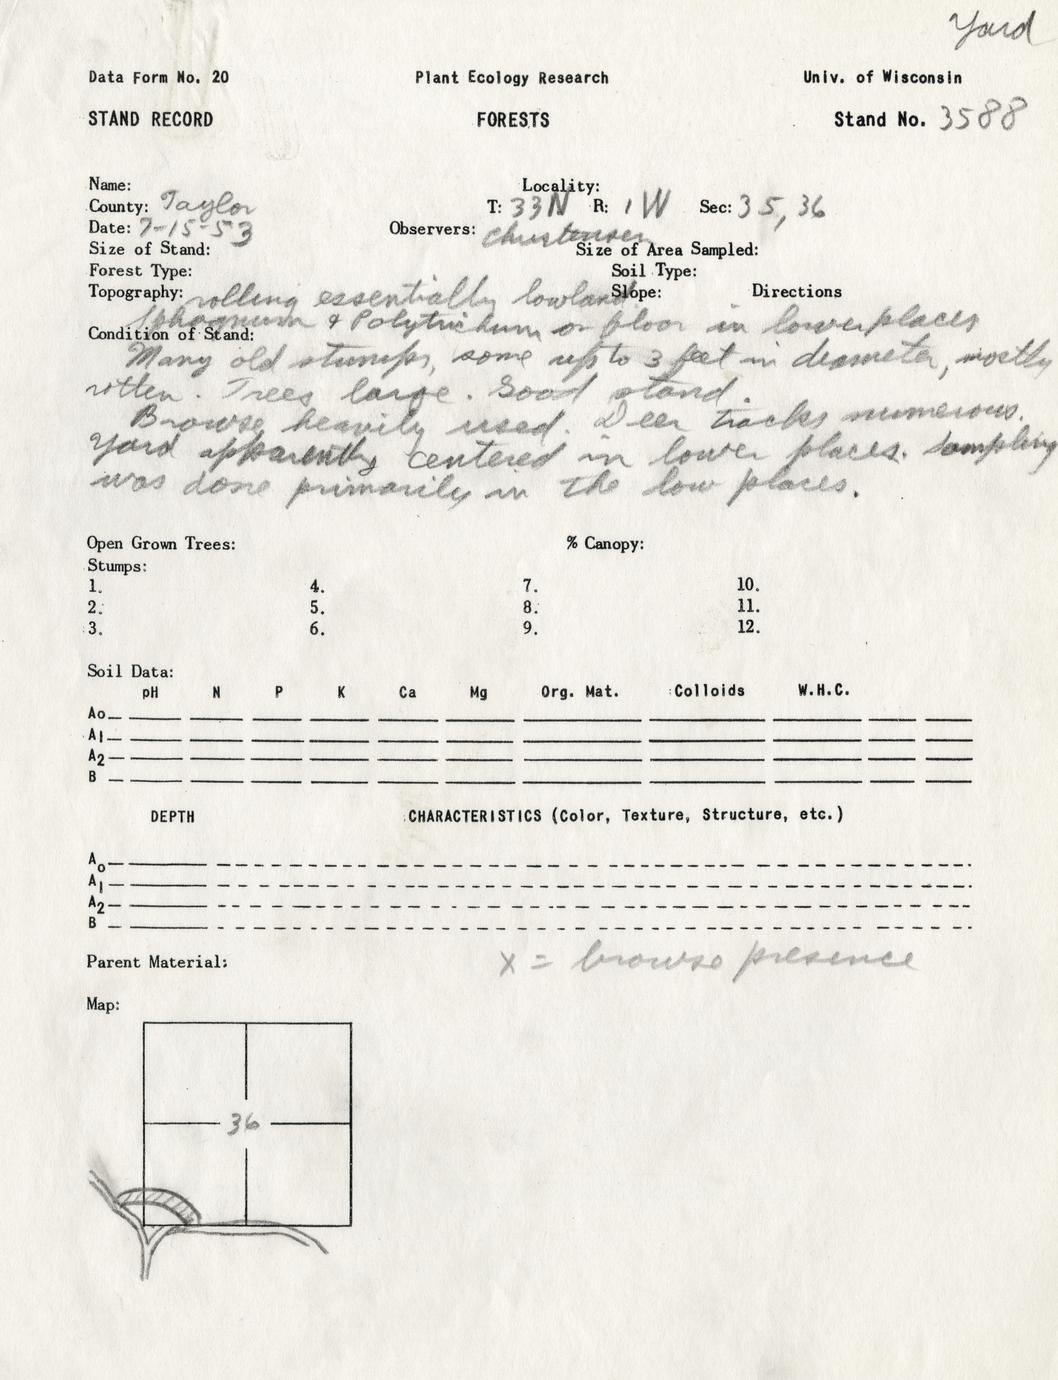 Yard
Data Form No. 20 Plant Ecology Research Univ. of Wisconsin
STAND RECORD FORESTS Stand No. 3588
Name: Locality:
County: Taylor T: 33N R: 1W Sec: 35, 36
Date: 7-15-53 Observers: Christensen
Size of Stand: Size of Area Sampled:
Forest Type: Soil Type:
Topography: rolling essentially lowland Slope: Directions
Sphagnum & Polytrichum on floor in lower places
Condition of Stand:
Many old stumps, some up to 3 feet in diameter, mostly
rotten. Trees large. Good stand.
Browse heavily used. Deer tracks numerous.
Yard apparently centered in lower places. Sampling
was done primarily in the low places.
Open Grown Trees: % Canopy:
Stumps:
1. 4. 7. 10.
2. 5. 8. 11.
3. 6. 9. 12.
Soil Data:
pH N P K Ca Mg Org. Mat. Colloids W.H.C.
Ao
A1
A2
B
DEPTH CHARACTERISTICS (Color, Texture, Structure, etc.)
Ao
A1
A2
B
Parent Material: x = browse presence
Map:
36